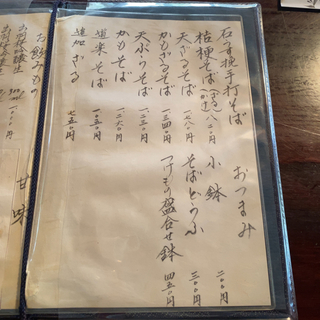 石うす挽手打そば
桔梗そば（ざる・かけ）八二〇円
天ざるそば 一、一七八〇円
かもざるそば 一、三四〇円
天ぷらそば 一、二三〇円
かもそば 一、二六〇円
道楽そば 一、〇五〇円
追加ざる 七五〇円
おつまみ
小鉢 二〇〇円
そばどうふ 三〇〇円
つけもの盛合せ鉢 四五〇円
お飲みもの
甘味